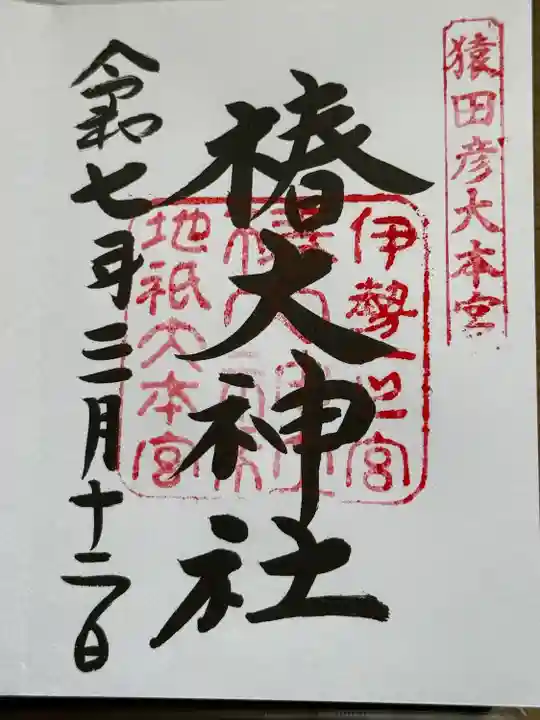 猿田彦大本宮
椿大神社
伊勢一世宮
地祇大本宮
令和七年三月十二日